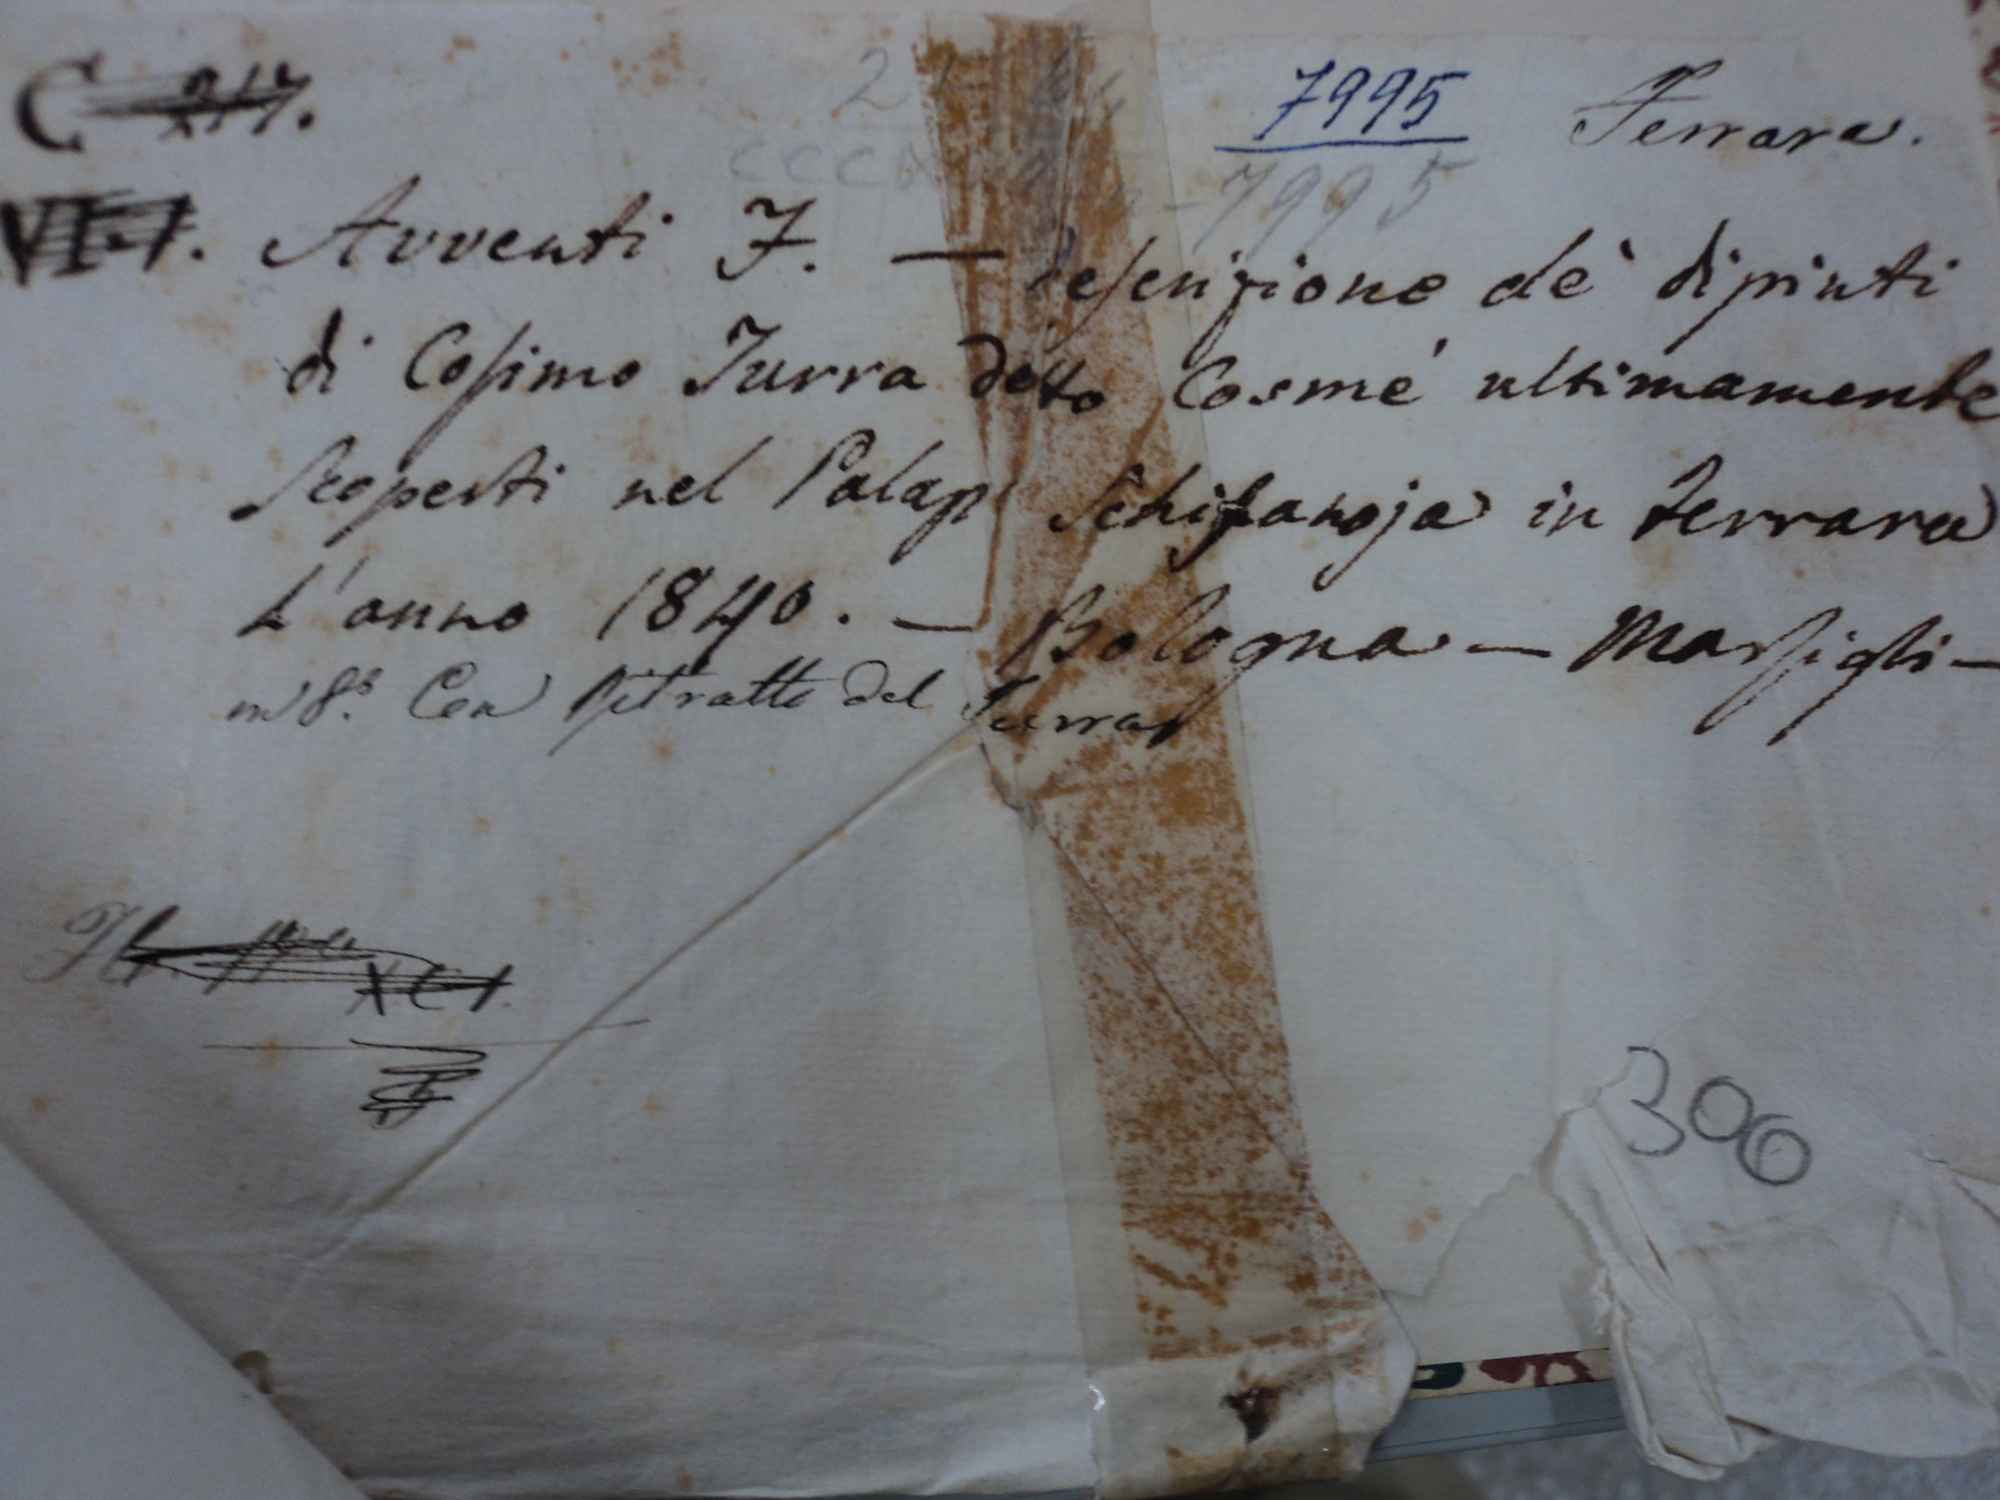 C
7995 Ferrara.
7995
Avventi F. — descrizione de' dipinti
di Cosimo Turra detto Cosmé ultimamente
Scoperti nel Palaz Schifanoja in Ferrara
L'anno 1840. — Bologna — Marsigli —
in 8.° Con Ritratto del Turra
XCI.
300